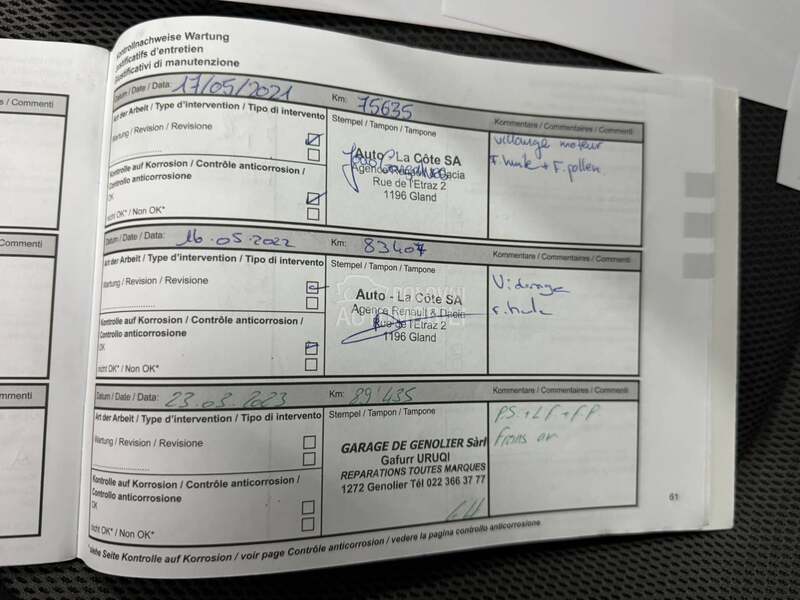 Kontrollnachweise Wartung
Justificatifs d'entretien
Giustificativi di manutenzione
Datum / Date / Data: 17/05/2021 Km: 75635
Art der Arbeit / Type d'intervention / Tipo di intervento
Wartung / Revision / Revisione
Kontrolle auf Korrosion / Contrôle anticorrosion /
Controllo anticorrosione
OK
nicht OK* / Non OK*
Stempel / Tampon / Tampone
Auto - La Côte SA
Agence Renault & Dacia
Rue de l'Etraz 2
1196 Gland
Kommentare / Commentaires / Commenti
moteur
F. huile + F. pollen
Datum / Date / Data: 16.05.2022 Km: 83407
Art der Arbeit / Type d'intervention / Tipo di intervento
Wartung / Revision / Revisione
Kontrolle auf Korrosion / Contrôle anticorrosion /
Controllo anticorrosione
OK
nicht OK* / Non OK*
Stempel / Tampon / Tampone
Auto - La Côte SA
Agence Renault & Dacia
Rue de l'Etraz 2
1196 Gland
Kommentare / Commentaires / Commenti
Vidange
F. huile
Datum / Date / Data: 23.03.2023 Km: 89'435
Art der Arbeit / Type d'intervention / Tipo di intervento
Wartung / Revision / Revisione
Kontrolle auf Korrosion / Contrôle anticorrosion /
Controllo anticorrosione
OK
nicht OK* / Non OK*
Stempel / Tampon / Tampone
GARAGE DE GENOLIER Sàrl
Gafurr URUQI
REPARATIONS TOUTES MARQUES
1272 Genolier Tél 022 366 37 77
Kommentare / Commentaires / Commenti
P.S + LF + F.P
Freins ar
61
* siehe Seite Kontrolle auf Korrosion / voir page Contrôle anticorrosion / vedere la pagina controllo anticorrosione
s / Commenti
/ Commenti
Commenti